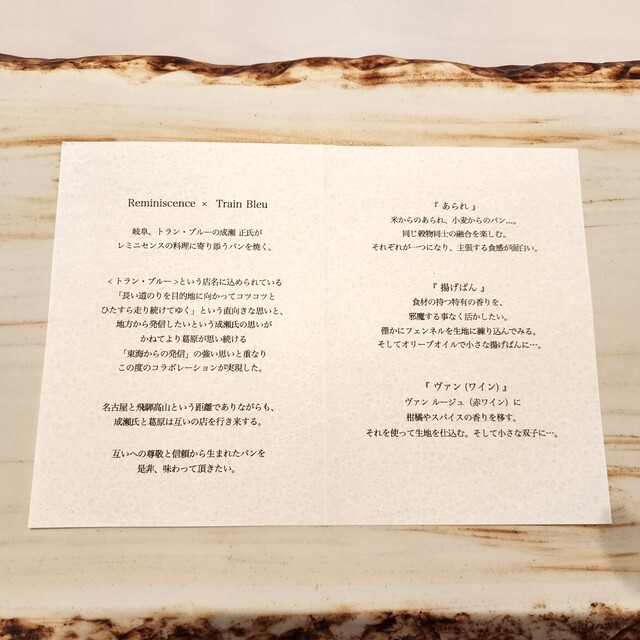 Reminiscence × Train Bleu
岐阜、トラン・ブルーの成瀬 正氏が
レミニセンスの料理に寄り添うパンを焼く。
< トラン・ブルー >という店名に込められている
「長い道のりを目的地に向かってコツコツと
ひたすら走り続けてゆく」という直向きな思いと、
地方から発信したいという成瀬氏の思いが
かねてより葛原が思い続ける
「東海からの発信」の強い思いと重なり
この度のコラボレーションが実現した。
名古屋と飛騨高山という距離でありながらも、
成瀬氏と葛原は互いの店を行き来する。
互いへの尊敬と信頼から生まれたパンを
是非、味わって頂きたい。
『 あられ 』
米からのあられ、小麦からのパン…。
同じ穀物同士の融合を楽しむ。
それぞれが一つになり、主張する食感が面白い。
『 揚げぱん 』
食材の持つ特有の香りを、
邪魔する事なく活かしたい。
僅かにフェンネルを生地に練り込んでみる。
そしてオリーブオイルで小さな揚げぱんに…。
『 ヴァン (ワイン) 』
ヴァン ルージュ（赤ワイン）に
柑橘やスパイスの香りを移す。
それを使って生地を仕込む。そして小さな双子に…。